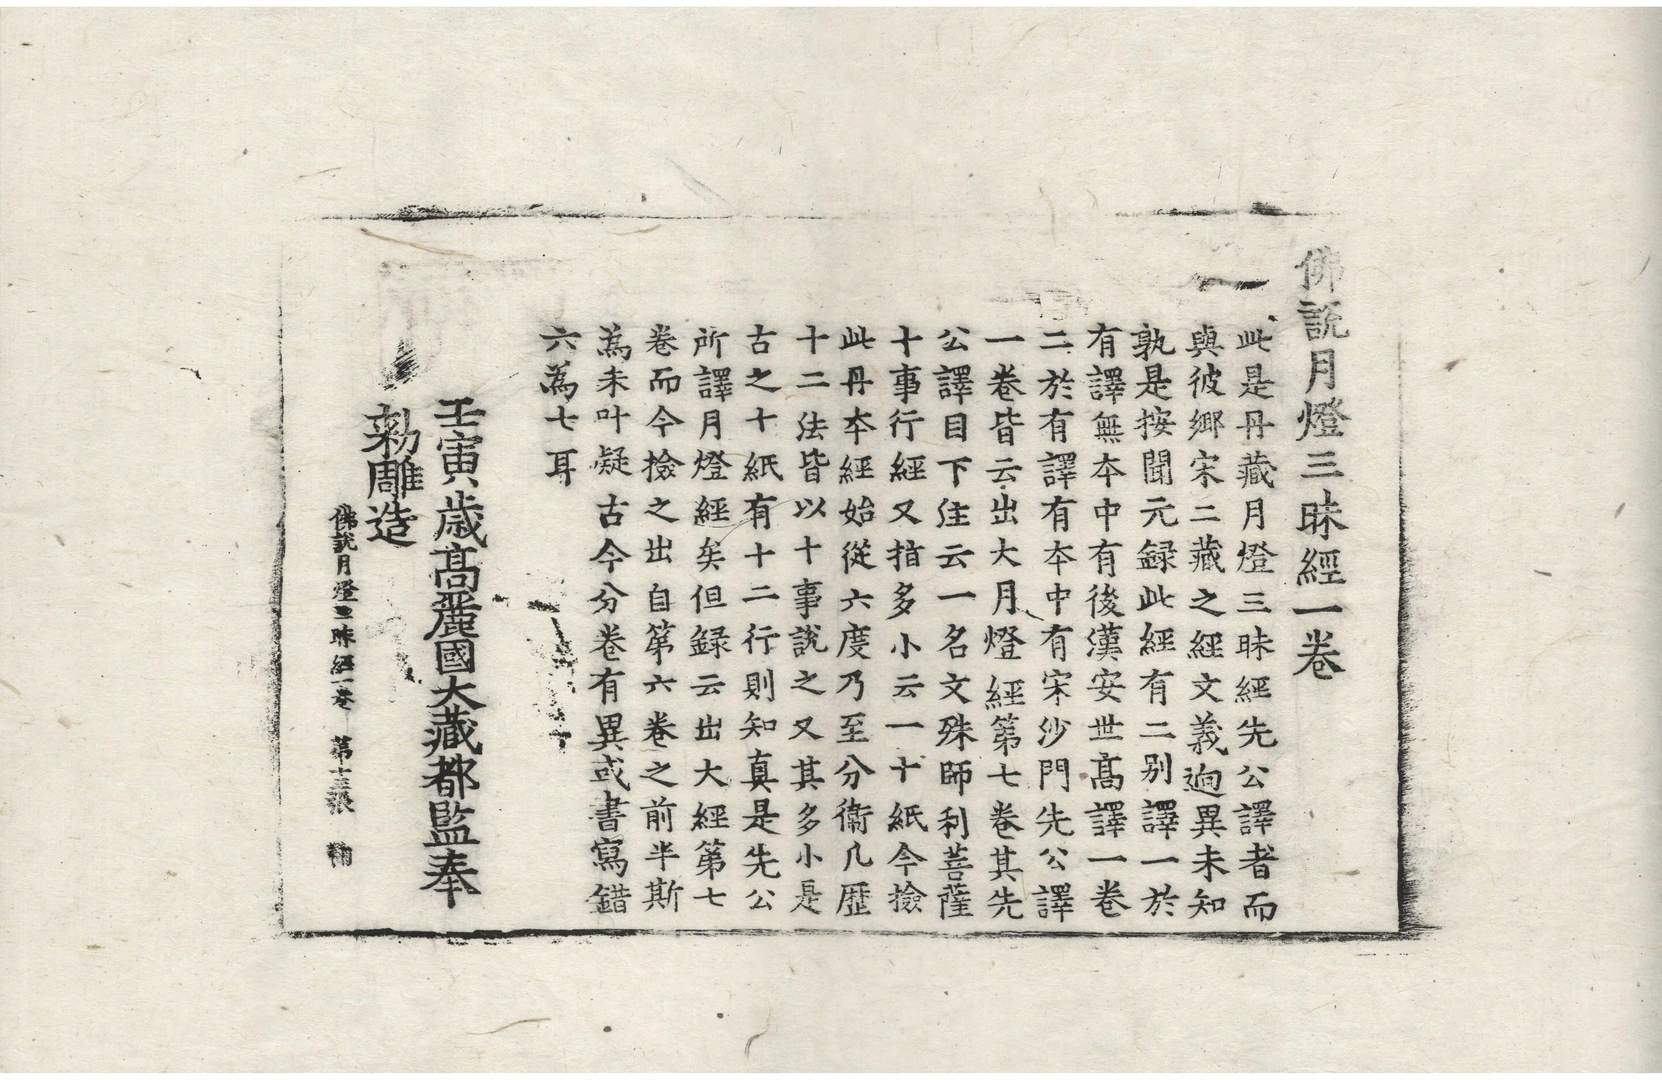 佛說月燈三昧經一卷
此是丹藏月燈三昧經先公譯者而
與彼鄉宋二藏之經文義逈異未知
孰是按開元録此經有二別譯一於
有譯無本中有後漢安世髙譯一卷
二於有譯有本中有宋沙門先公譯
一卷皆云出大月燈經第七卷其先
公譯目下注云一名文殊師利菩薩
十事行經又指多小云一十紙今撿
此丹本經始從六度乃至分衞凡歷
十二法皆以十事說之又其多小是
古之十紙有十二行則知真是先公
所譯月燈經矣但録云出大經第七
卷而今撿之出自第六卷之前半斯
為未叶疑古今分卷有異或書寫錯
六為七耳
壬寅歳髙麗國大藏都監奉
勑雕造
佛說月燈三昧經一卷 第十三張